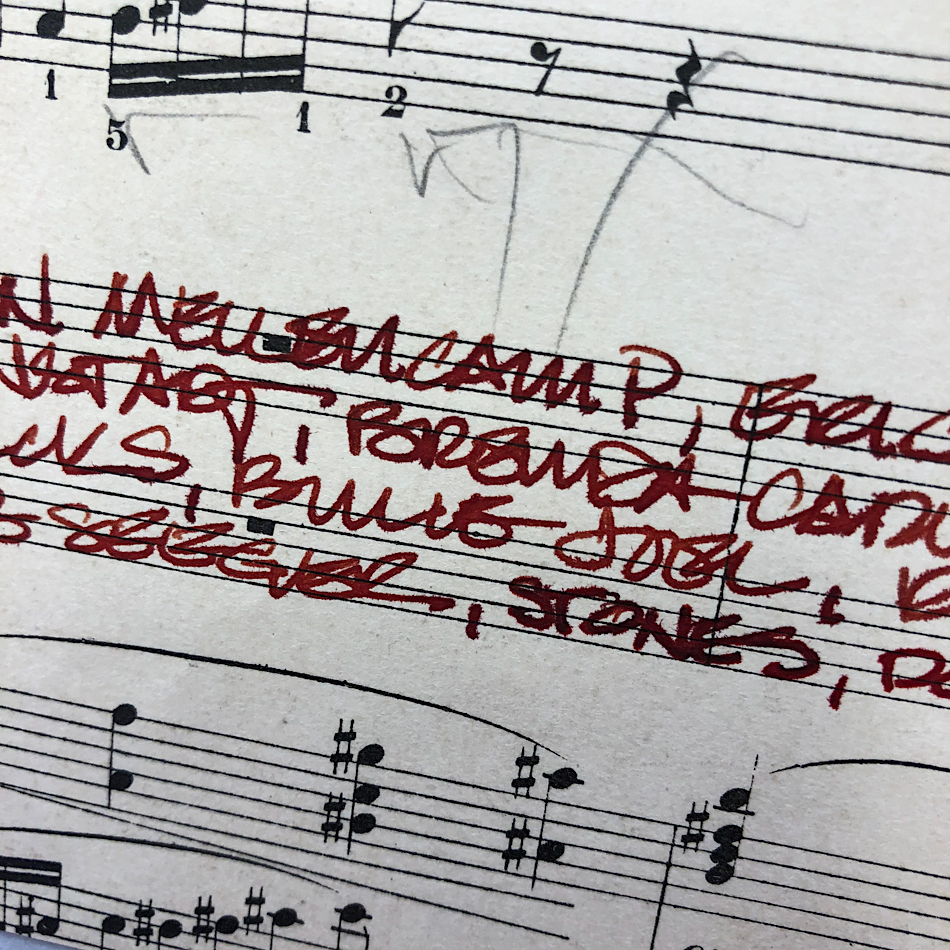 1
5 1 2
N MELLENCAMP, ERIC
, BRENDA
NS, BILLIE JOEL,
B SEEGER, STONES,